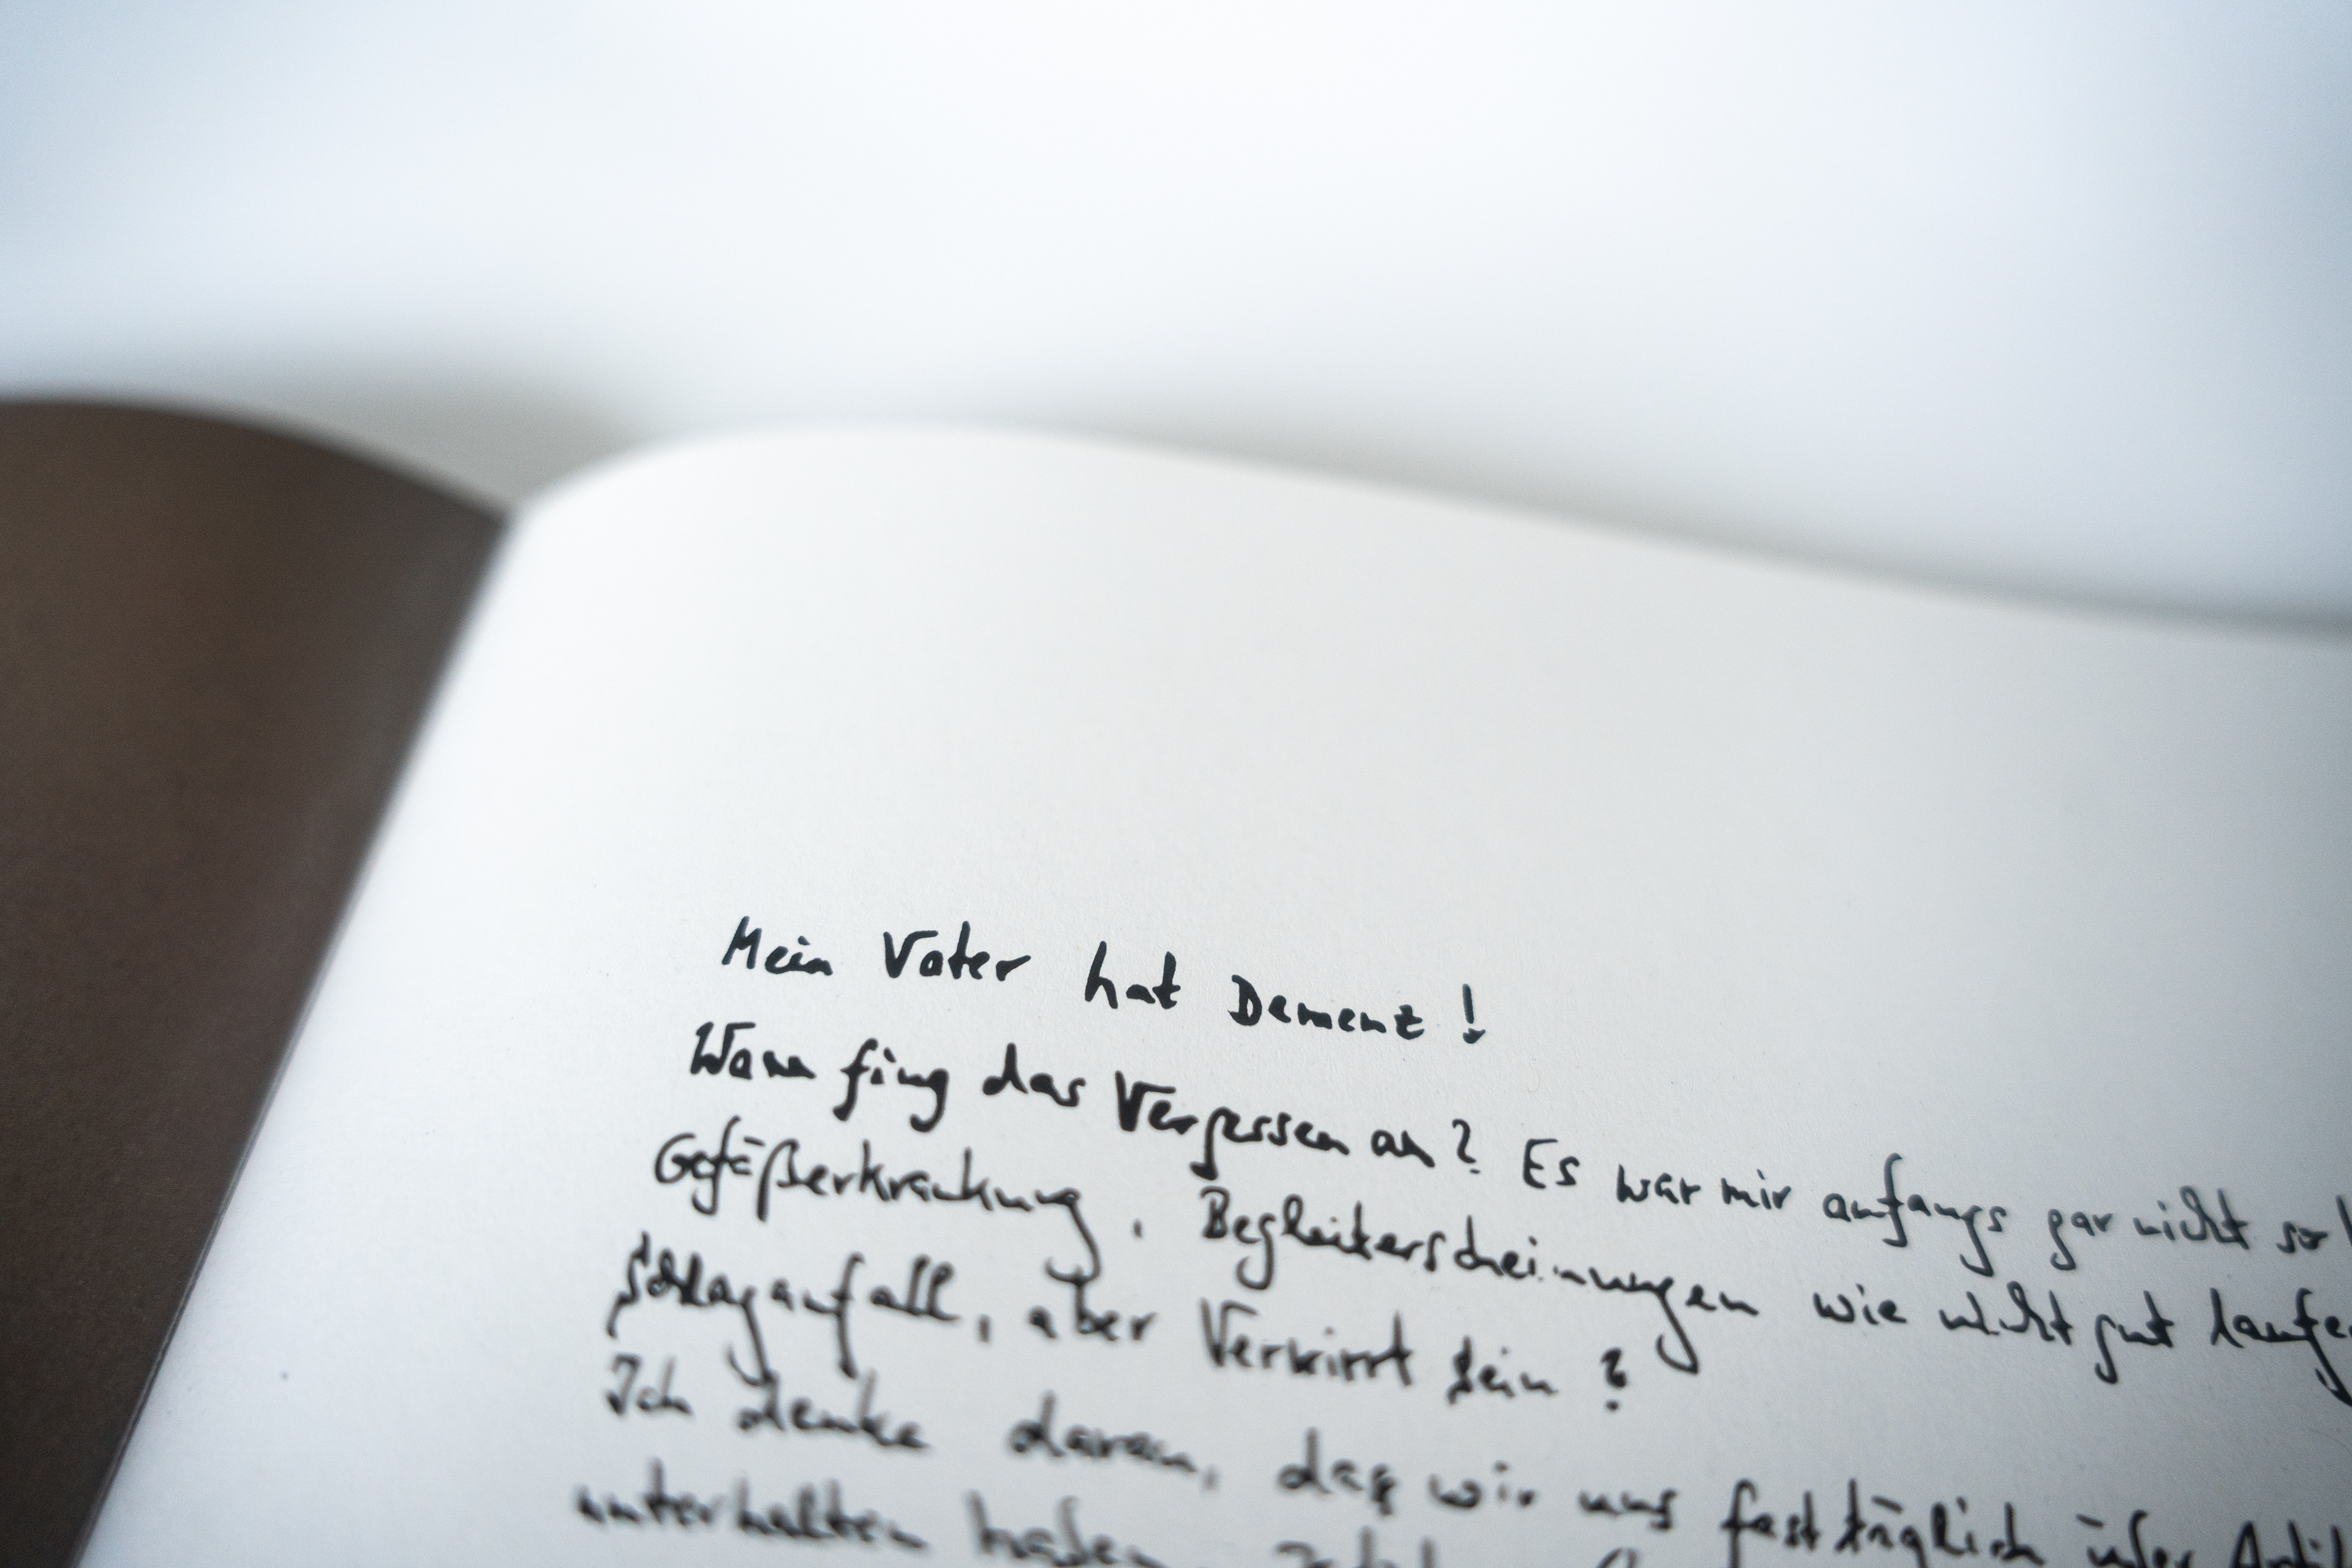 Mein Vater hat Demenz!
Wann fing das Vergessen an? Es war mir anfangs gar nicht so
Gefäßerkrankung, Begleiterscheinungen wie nicht gut laufe
Schlaganfall, aber Verwirrt sein?
Ich denke daran, das wir uns fast täglich über
unterhalten haben